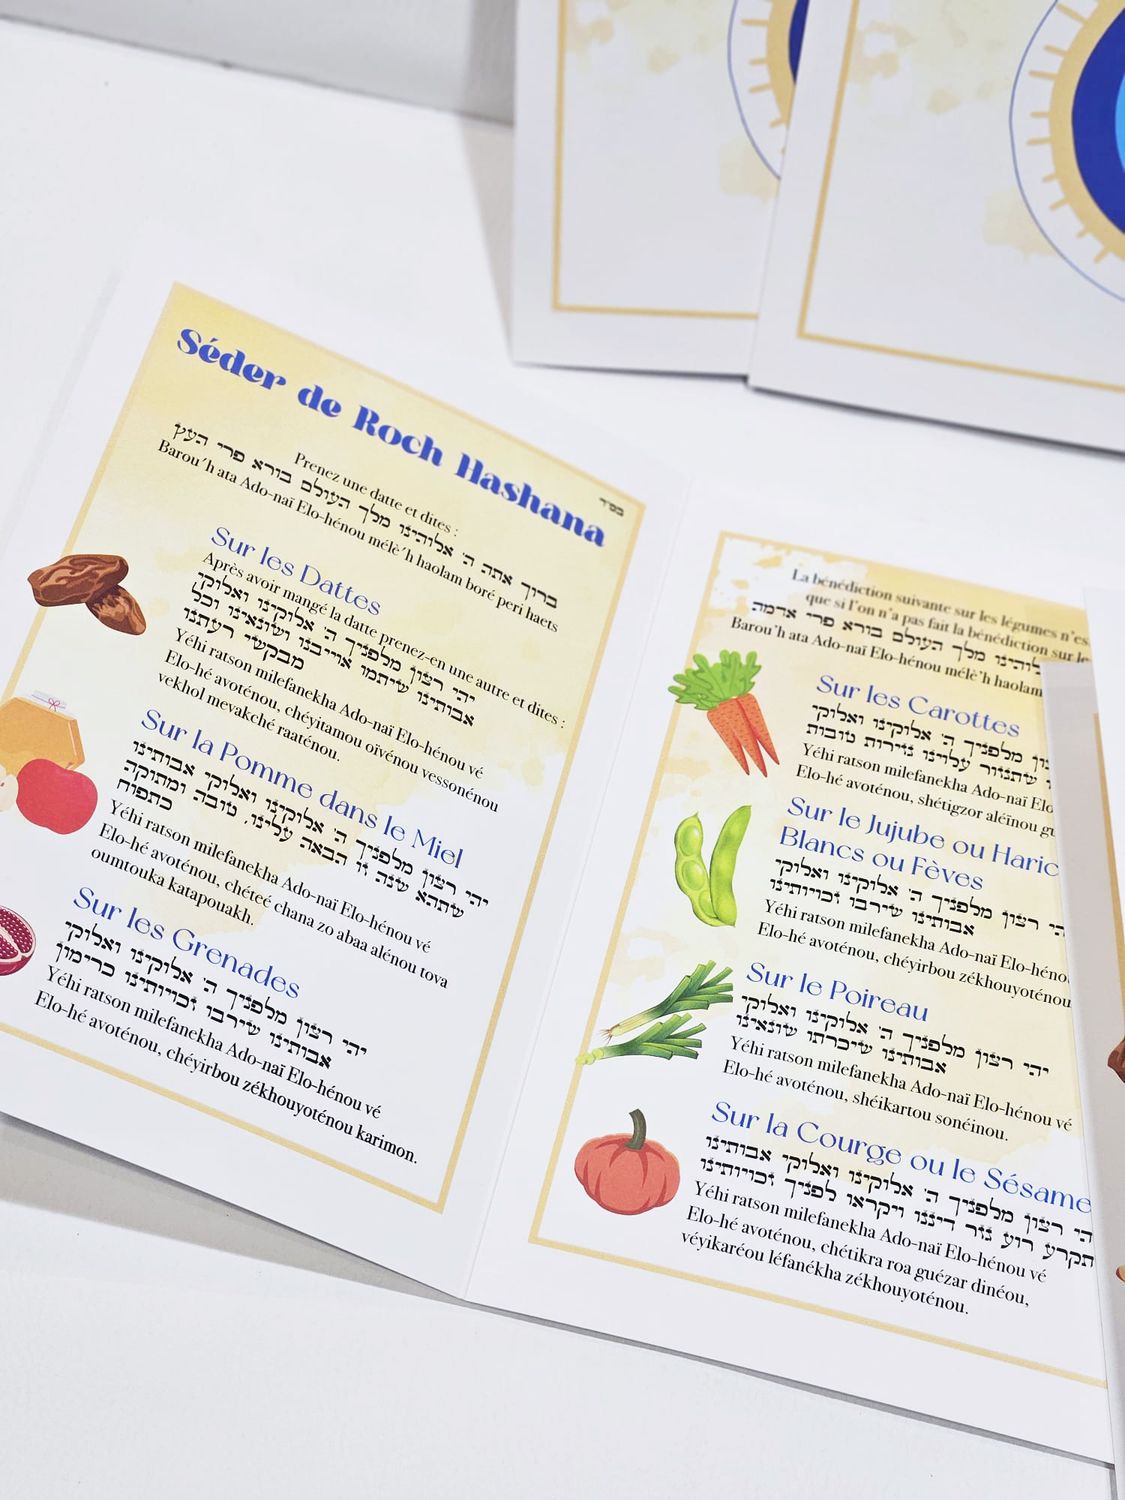 בס״ד
Séder de Roch Hashana
Prenez une datte et dites :
ברוך אתה ה׳ אלוהינו מלך העולם בורא פרי העץ
Barou'h ata Ado-naï Elo-hénou mélè'h haolam boré peri haets
Sur les Dattes
Après avoir mangé la datte prenez-en une autre et dites :
יהי רצון מלפניך ה׳ אלוקינו ואלוקי
אבותינו שיתמו אוייבנו ושונאינו וכל
מבקשי רעתנו
Yéhi ratson milefanekha Ado-naï Elo-hénou vé
Elo-hé avoténou, chéyitamou oïvénou vessonénou
vekhol mevakché raaténou.
Sur la Pomme dans le Miel
יהי רצון מלפניך ה׳ אלוקינו ואלוקי אבותינו
שתהא שנה זו הבאה עלינו, טובה ומתוקה
כתפוח
Yéhi ratson milefanekha Ado-naï Elo-hénou vé
Elo-hé avoténou, chéteé chana zo abaa alénou tova
oumtouka katapouakh.
Sur les Grenades
יהי רצון מלפניך ה׳ אלוקינו ואלוקי
אבותינו שירבו זכויותינו כרימון
Yéhi ratson milefanekha Ado-naï Elo-hénou vé
Elo-hé avoténou, chéyirbou zékhouyoténou karimon.
La bénédiction suivante sur les légumes n'es
que si l'on n'a pas fait la bénédiction sur le
מלך העולם בורא פרי אדמה
Barou'h ata Ado-naï Elo-hénou mélè'h haolam
Sur les Carottes
רצון מלפניך ה׳ אלוקינו ואלוקי
שתגזור עלינו גזירות טובות
Yéhi ratson milefanekha Ado-naï Elo
Elo-hé avoténou, shétigzor aléïnou gu
Sur le Jujube ou Haric
Blancs ou Fèves
רצון מלפניך ה׳ אלוקינו ואלוקי
אבותינו שירבו זכויותינו
Yéhi ratson milefanekha Ado-naï Elo-héno
Elo-hé avoténou, chéyirbou zékhouyoténou
Sur le Poireau
יהי רצון מלפניך ה׳ אלוקינו ואלוקי
אבותינו שיכרתו שונאינו
Yéhi ratson milefanekha Ado-naï Elo-hénou vé
Elo-hé avoténou, shéikartou sonéinou.
Sur la Courge ou le Sésame
הי רצון מלפניך ה׳ אלוקינו ואלוקי אבותינו
תקרע רוע גזר דיננו ויקראו לפניך זכויותינו
Yéhi ratson milefanekha Ado-naï Elo-hénou vé
Elo-hé avoténou, chétikra roa guézar dinéou,
véyikaréou léfanékha zékhouyoténou.